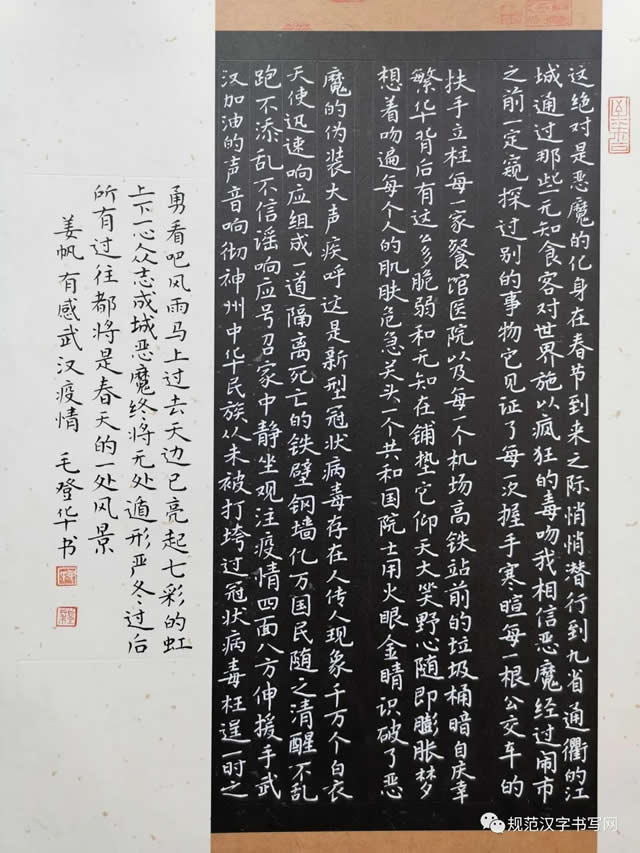 这绝对是恶魔的化身在春节到来之际悄悄潜行到九省通衢的江
城通过那些无知食客对世界施以疯狂的毒吻我相信恶魔经过闹市
之前一定窥探过别的事物它见证了每一次握手寒暄每一根公交车的
扶手立柱每一家餐馆医院以及每一个机场高铁站前的垃圾桶暗自庆幸
繁华背后有这多脆弱和无知在铺垫它仰天大笑野心随即膨胀梦
想着吻遍每个人的肌肤危急关头一个共和国院士用火眼金睛识破了恶
魔的伪装大声疾呼这是新型冠状病毒存在人传人现象千万个白衣
天使迅速响应组成一道隔离死亡的铁壁钢墙亿万国民随之清醒不乱
跑不添乱不信谣响应号召家中静坐观注疫情四面八方伸援手武
汉加油的声音响彻神州中华民族从未被打垮过冠状病毒枉逞一时之
勇看吧风雨马上过去天边已亮起七彩的虹
上下一心众志成城恶魔终将无处遁形严冬过后
所有过往都将是春天的一处风景
姜帆有感武汉疫情 毛登华书
规范汉字书写网